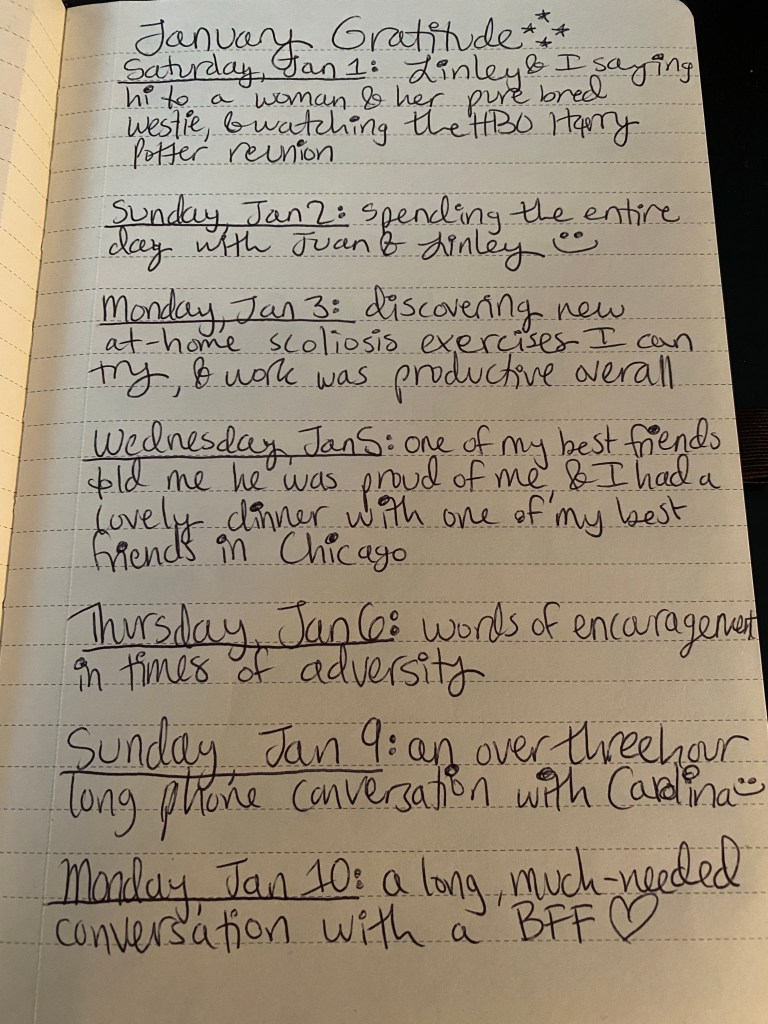 January Gratitude
Saturday, Jan 1: Linley & I saying
hi to a woman & her pure bred
westie, & watching the HBO Harry
Potter reunion
Sunday, Jan 2: spending the entire
day with Juan & Linley
Monday, Jan 3: discovering new
at-home scoliosis exercises I can
try, & work was productive overall
Wednesday, Jan 5: one of my best friends
told me he was proud of me, & I had a
lovely dinner with one of my best
friends in Chicago
Thursday, Jan 6: words of encouragement
in times of adversity
Sunday, Jan 9: an over three hour
long phone conversation with Carolina
Monday, Jan 10: a long, much-needed
conversation with a BFF